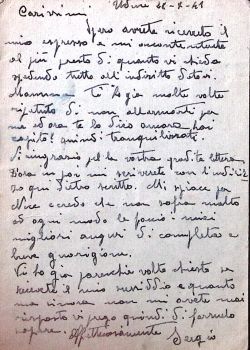 Carissimi Udine 28-7-41
Spero avrete ricevuto il
mio espresso e mi accontenterete
al più presto di quanto vi chiedo
spedendo tutto all'indirizzo datovi.
Mamma Ti ho già molte volte
ripetuto di non allarmarti per
me ed ora te lo dico ancora hai
capito! quindi tranquillizzati.
Vi ringrazio per la vostra gradita lettera
Dora in poi mi scriverete con l'indiriz
zo qui dietro scritto. Mi spiace per
credo che non sapia molto
ad ogni modo le faccio i miei
migliori auguri di completa e
breve guarigione.
Vi ho già parecchie volte chiesto se
ricevete il mio sussidio e quanto
ma sinora non mi avete mai
risposto vi prego quindi di farmelo
sapere. Affettuosamente
Sergio